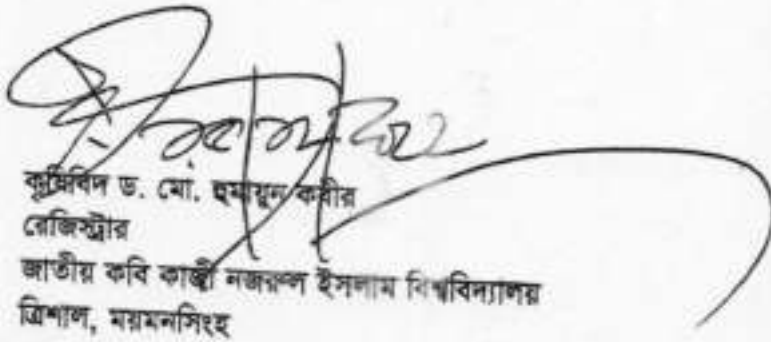 কৃষিবিদ ড. মো. হুমায়ুন কবীর
রেজিস্ট্রার
জাতীয় কবি কাজী নজরুল ইসলাম বিশ্ববিদ্যালয়
ত্রিশাল, ময়মনসিংহ